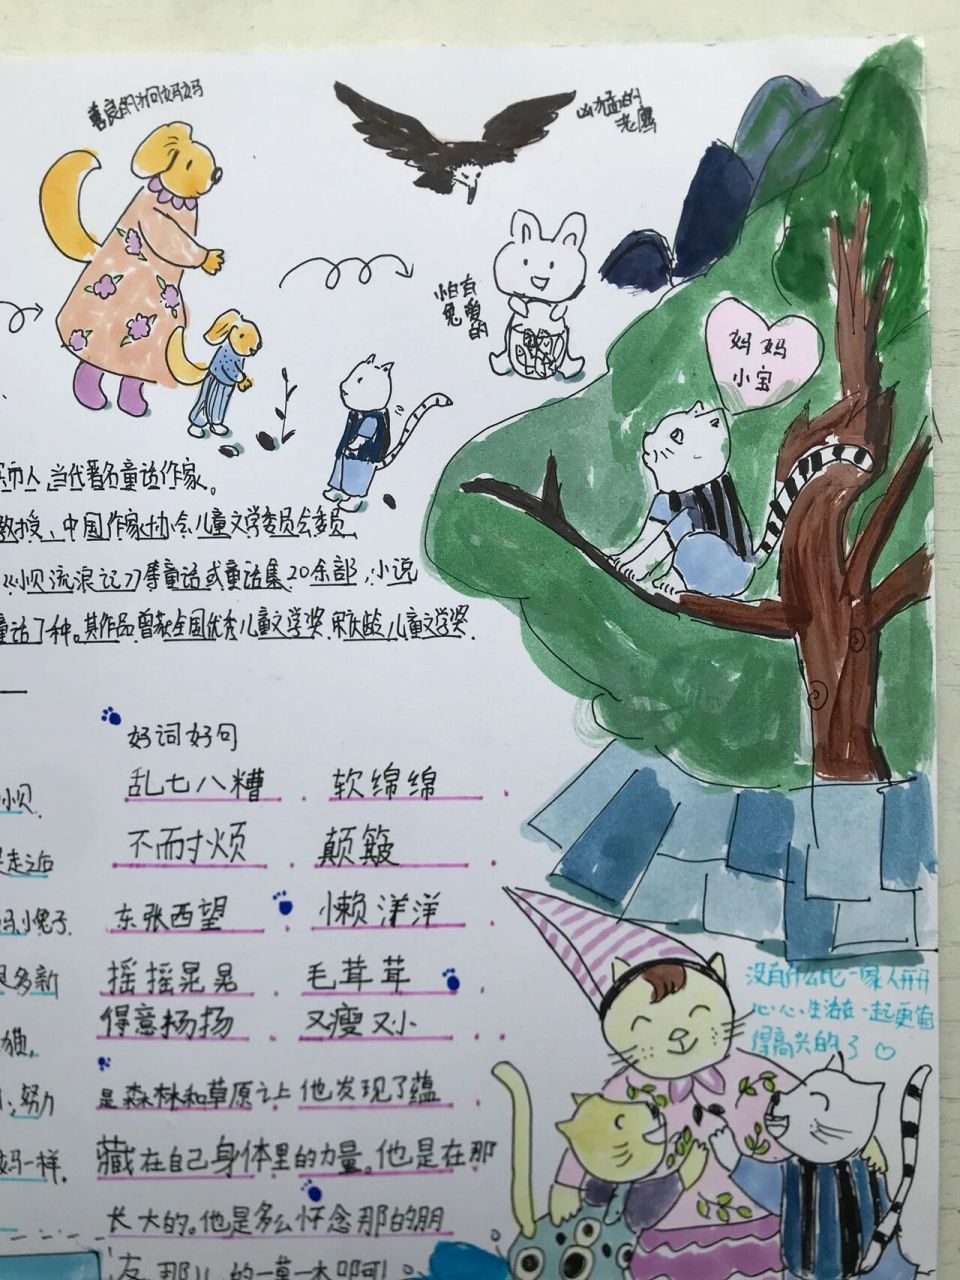 善良的狗妈妈
凶猛的
老鹰
怕有
兔爱
的
妈妈
小宝
市人,当代著名童话作家。
教授、中国作家协会儿童文学委员会委员
《小贝流浪记》等童话或童话集20余部,小说
童话了种。其作品曾获全国优秀儿童文学奖.宋庆龄儿童文学奖.
好词好句
乱七八糟 . 软绵绵 .
小贝.
不耐烦 . 颠簸 .
是走之后
东张西望 懒洋洋 .
妈,小兔子.
摇摇晃晃 . 毛茸茸 .
很多新
得意扬扬 . 又瘦又小 . .
猫.
是森林和草原之上 他发现了蕴 .
、努力
藏在自己身体里的力量。他是在那
妈一样.
长大的。他是多么怀念那的朋
友,那儿的一草一木啊!
没有什么比一家人开开
心心、生活在一起更值
得高兴的了♡